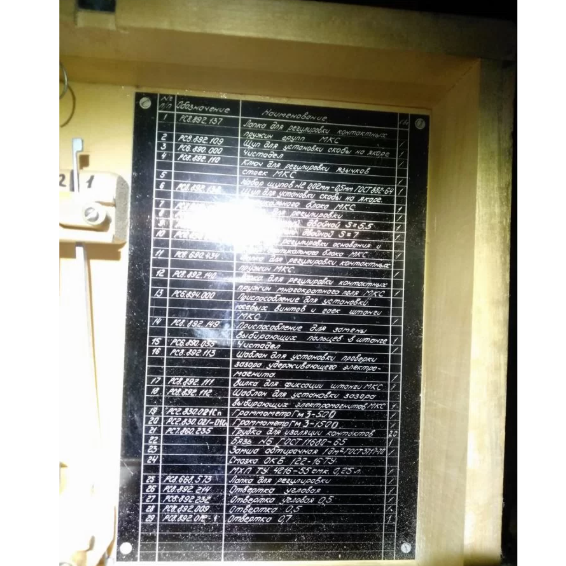 2 1
№ пп Обозначение Наименование
1 РС8.892.137 Лапка для регулировки контактных
пружин групп МКС 1
2 РС8.892.109 Щуп для установки скобы на якоре 1
3 РС6.890.000 Чистодел 1
4 РС8.892.110 Ключ для регулировки язычков
стоек МКС 1
5 Набор щупов №2 ГОСТ 882-64 1
6 Щуп для установки скобы на якоре.
7 блока МКС 1
8 для регулировки
9 двойной S=5,5
10 двойной S=7
регулировки основания и
блока МКС
11 для регулировки контактных
пружин МКС 1
12 РС8.892.140 для регулировки контактных
пружин многократного поля МКС 1
13 РС6.894.000 Приспособление для установки
осевых винтов и гаек штанги
МКС 1
14 РС8.892.149 Приспособление для замены
выбирающих пальцев в штанге 1
15 РС6.890.035 Чистодел 1
16 РС8.892.113 Шаблон для установки проверки
зазора удерживающего электро-
магнита. 1
17 РС8.892.111 Вилка для фиксации штанги МКС 1
18 РС8.892.112 Шаблон для установки зазора
выбирающих электромагнитов МКС 1
19 Граммометр Гм 3-50 1
20 Граммометр Гм 3-150 1
21 РС7.860.235 Трубка для изоляции контактов 20
22 Бязь №6 ГОСТ 11680-65
23 Замша обтирочная 1дм² ГОСТ 1
24 Смазка ОКБ 122-16 ТУ
МХП ТУ 4216-55 емк. 0,25л 1
25 РС8.668.573 Лапка для регулировки 1
26 РС8.892.214 Отвертка угловая 1
27 РС8.892.232 Отвертка угловая 0,5 1
28 РС8.892.009 Отвертка 0,5 1
29 РС8.892.012-1 Отвертка 0,7 1